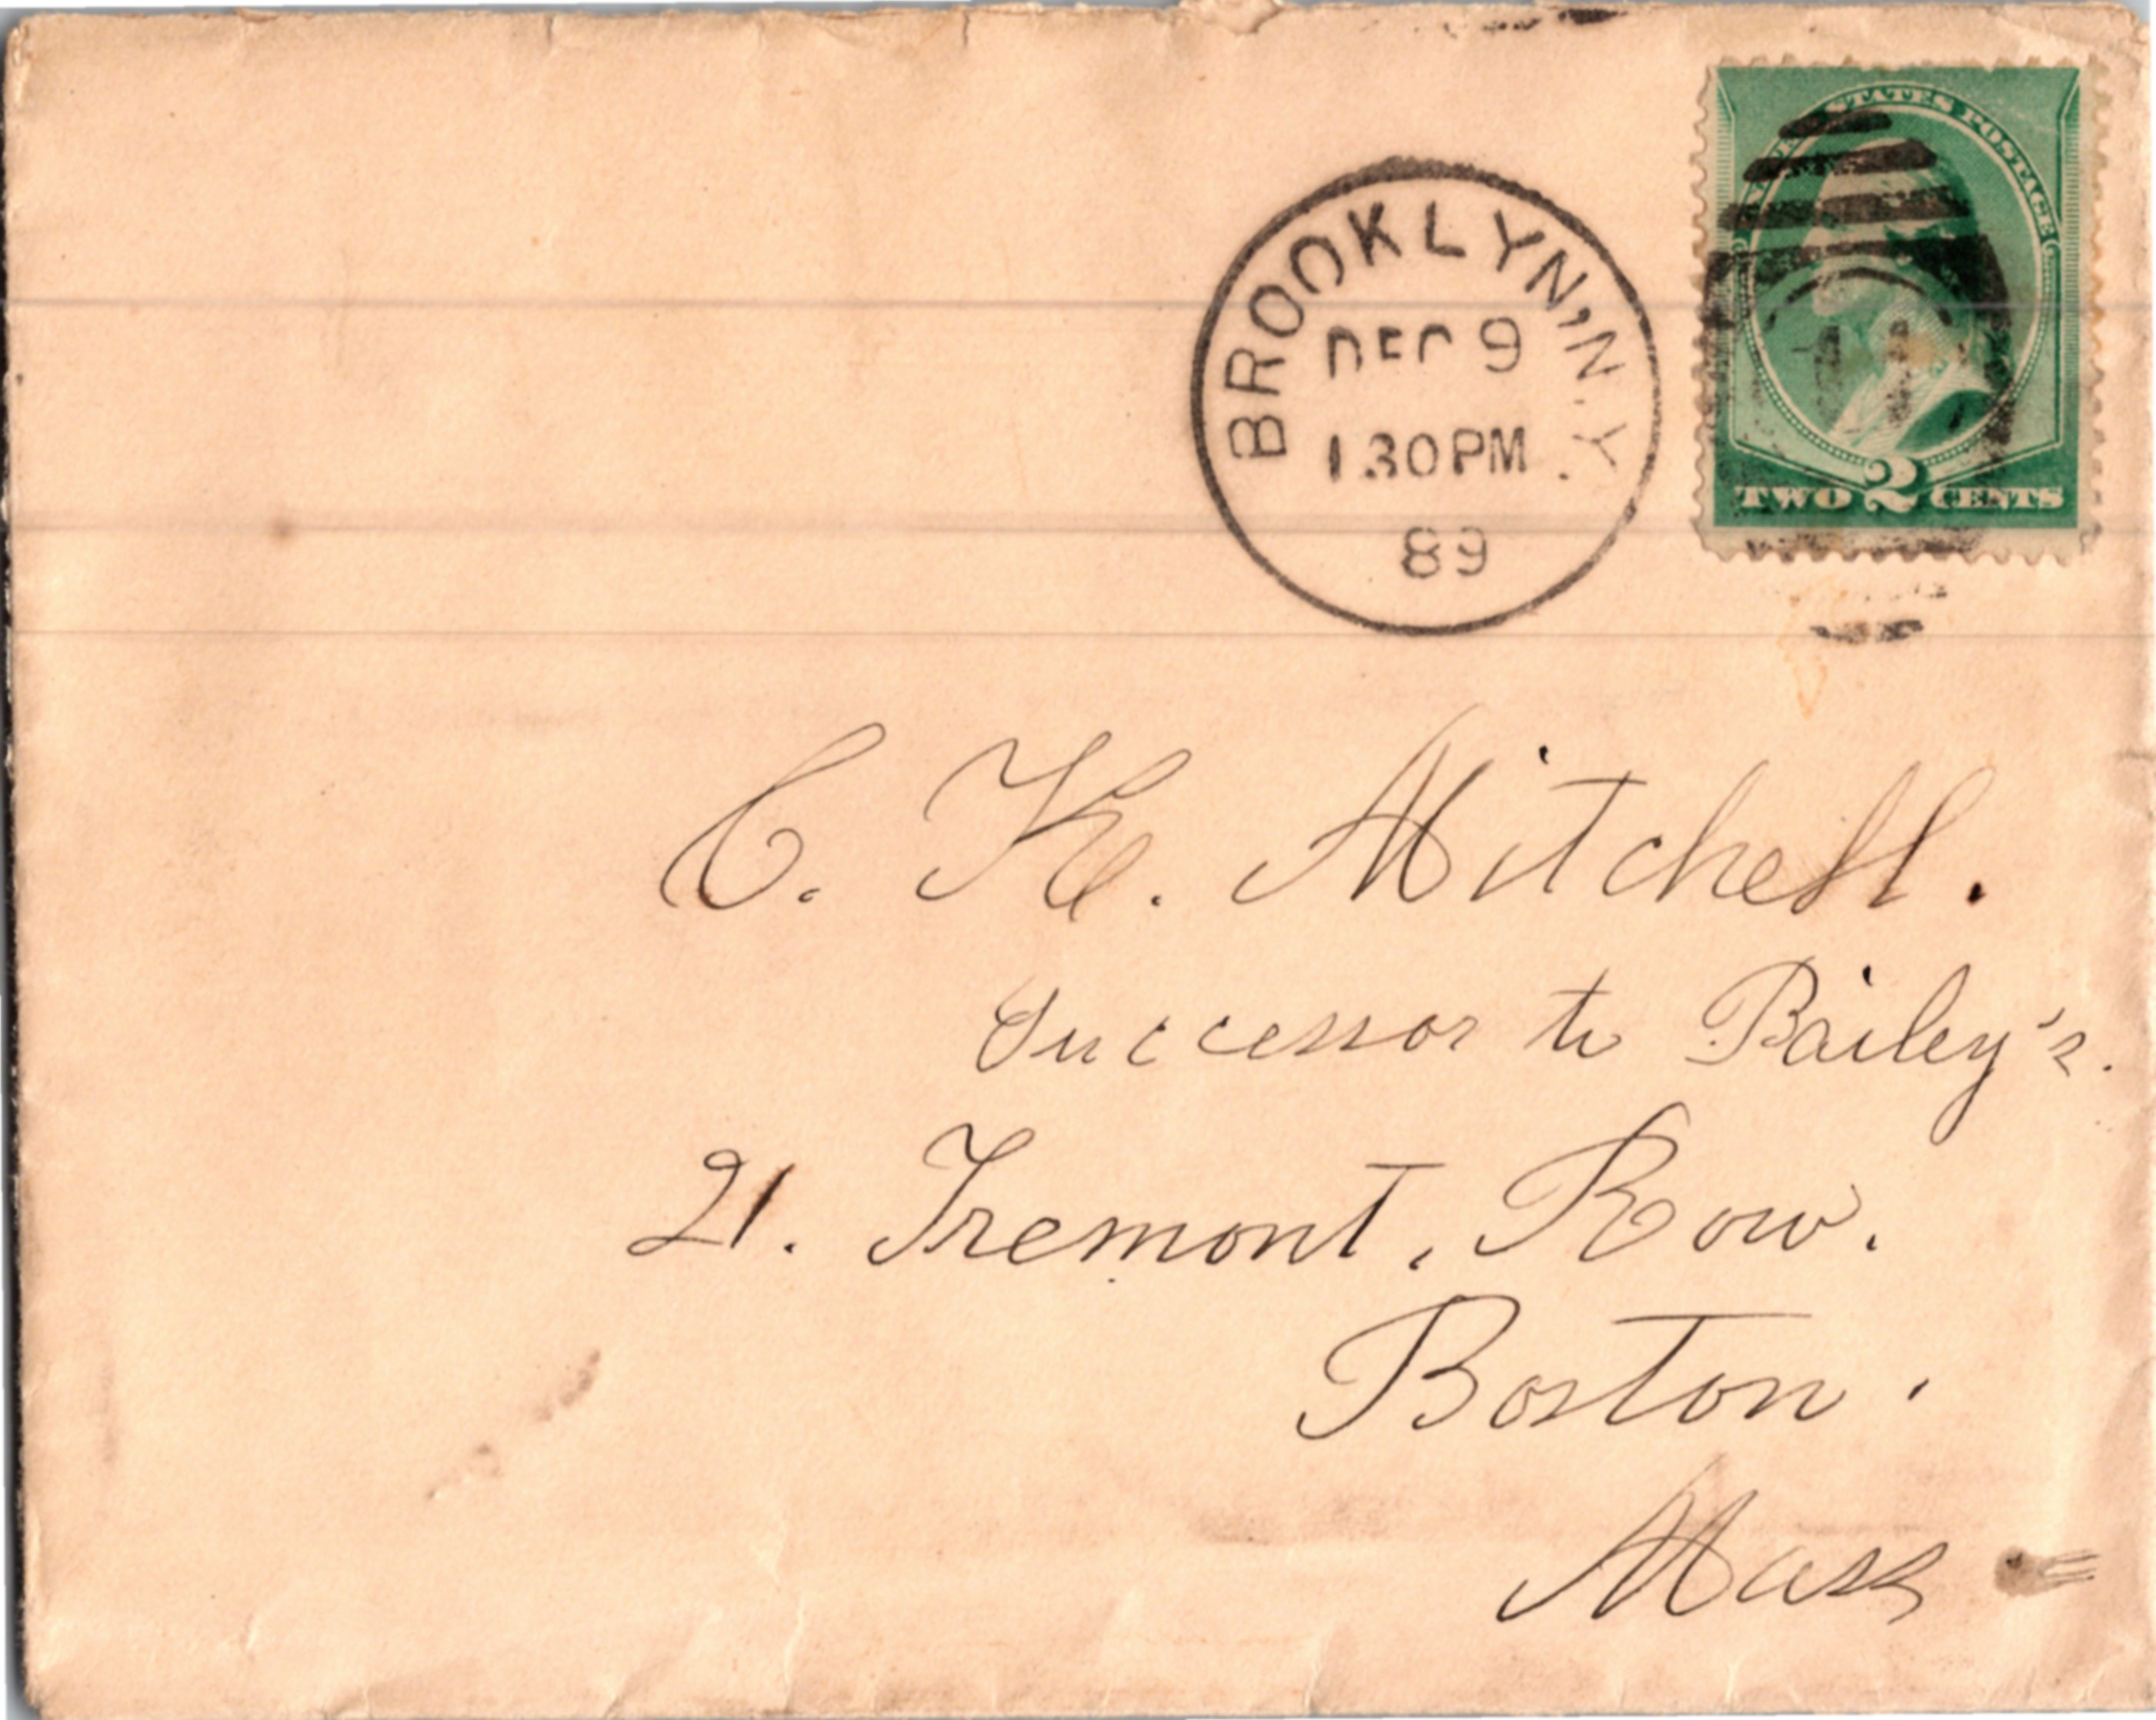 STATES POSTAGE
TWO 2 CENTS
BROOKLYN, N.Y.
DEC 9
1 30 PM
89
C. K. Mitchell.
Successor to Bailey's.
21. Tremont, Row.
Boston.
Mass